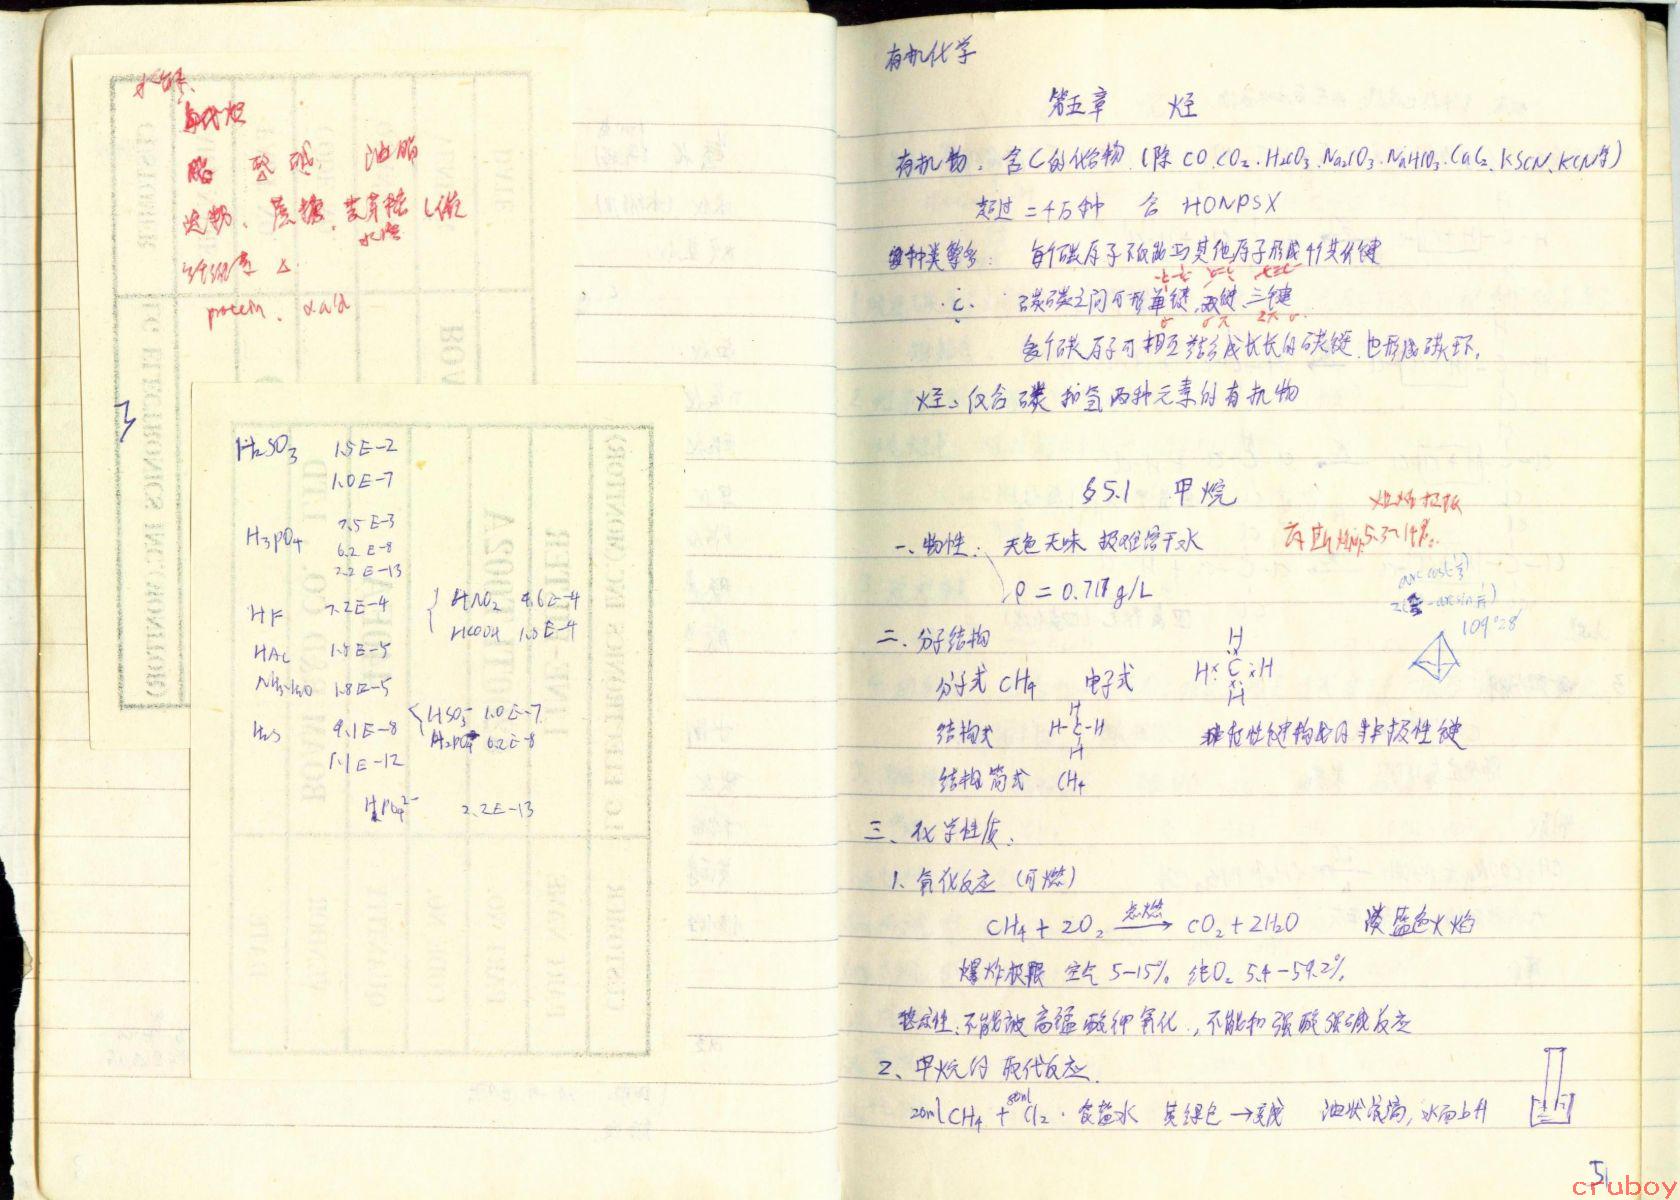 水解
卤代烃
酯 强碱 油脂
淀粉、蔗糖、麦芽糖
水浴
纤维素 △
protein、
H₂SO₃ 1.5E-2
1.0E-7
H₃PO₄ 7.5E-3
6.2E-8
2.2E-13
HF 7.2E-4 { HNO₂ 4.6E-4
HCOOH 1.8E-4
HAc 1.8E-5
NH₃·H₂O 1.8E-5
H₂S 9.1E-8 HSO₃⁻ 1.0E-7
H₂PO₄⁻ 6.2E-8
1.1E-12
HPO₄²⁻ 2.2E-13
有机化学
第五章 烃
有机物：含C的化合物（除CO.CO₂.H₂CO₃.Na₂CO₃.NaHCO₃.CaC₂.KSCN、KCN等）
超过二千万种 含 HONPSX
种类繁多： 每个碳原子不仅能与其他原子形成4个共价键
·C· 碳碳之间可形单键、双键、三键
σ σπ 2π σ
多个碳原子可相互结合成长长的碳链，也形成碳环。
烃：仅含碳和氢两种元素的有机物
§5.1 甲烷
一、物性： 无色无味 极难溶于水
ρ = 0.717 g/L
109°28′
二、分子结构
分子式 CH₄ 电子式
H
H × C × H
H
结构式
H
H-C-H
H
非极性键
结构简式 CH₄
三、化学性质：
1、氧化反应（可燃）
CH₄ + 2O₂ 点燃→ CO₂ + 2H₂O 淡蓝色火焰
爆炸极限 空气 5-15% 纯O₂ 5.4-59.2%
稳定性：不能被高锰酸钾氧化，不能和强酸强碱反应
2、甲烷的取代反应.
20ml CH₄ + 80ml Cl₂ · 食盐水 黄绿色→变浅 油状液滴，水面上升
51
cruboy